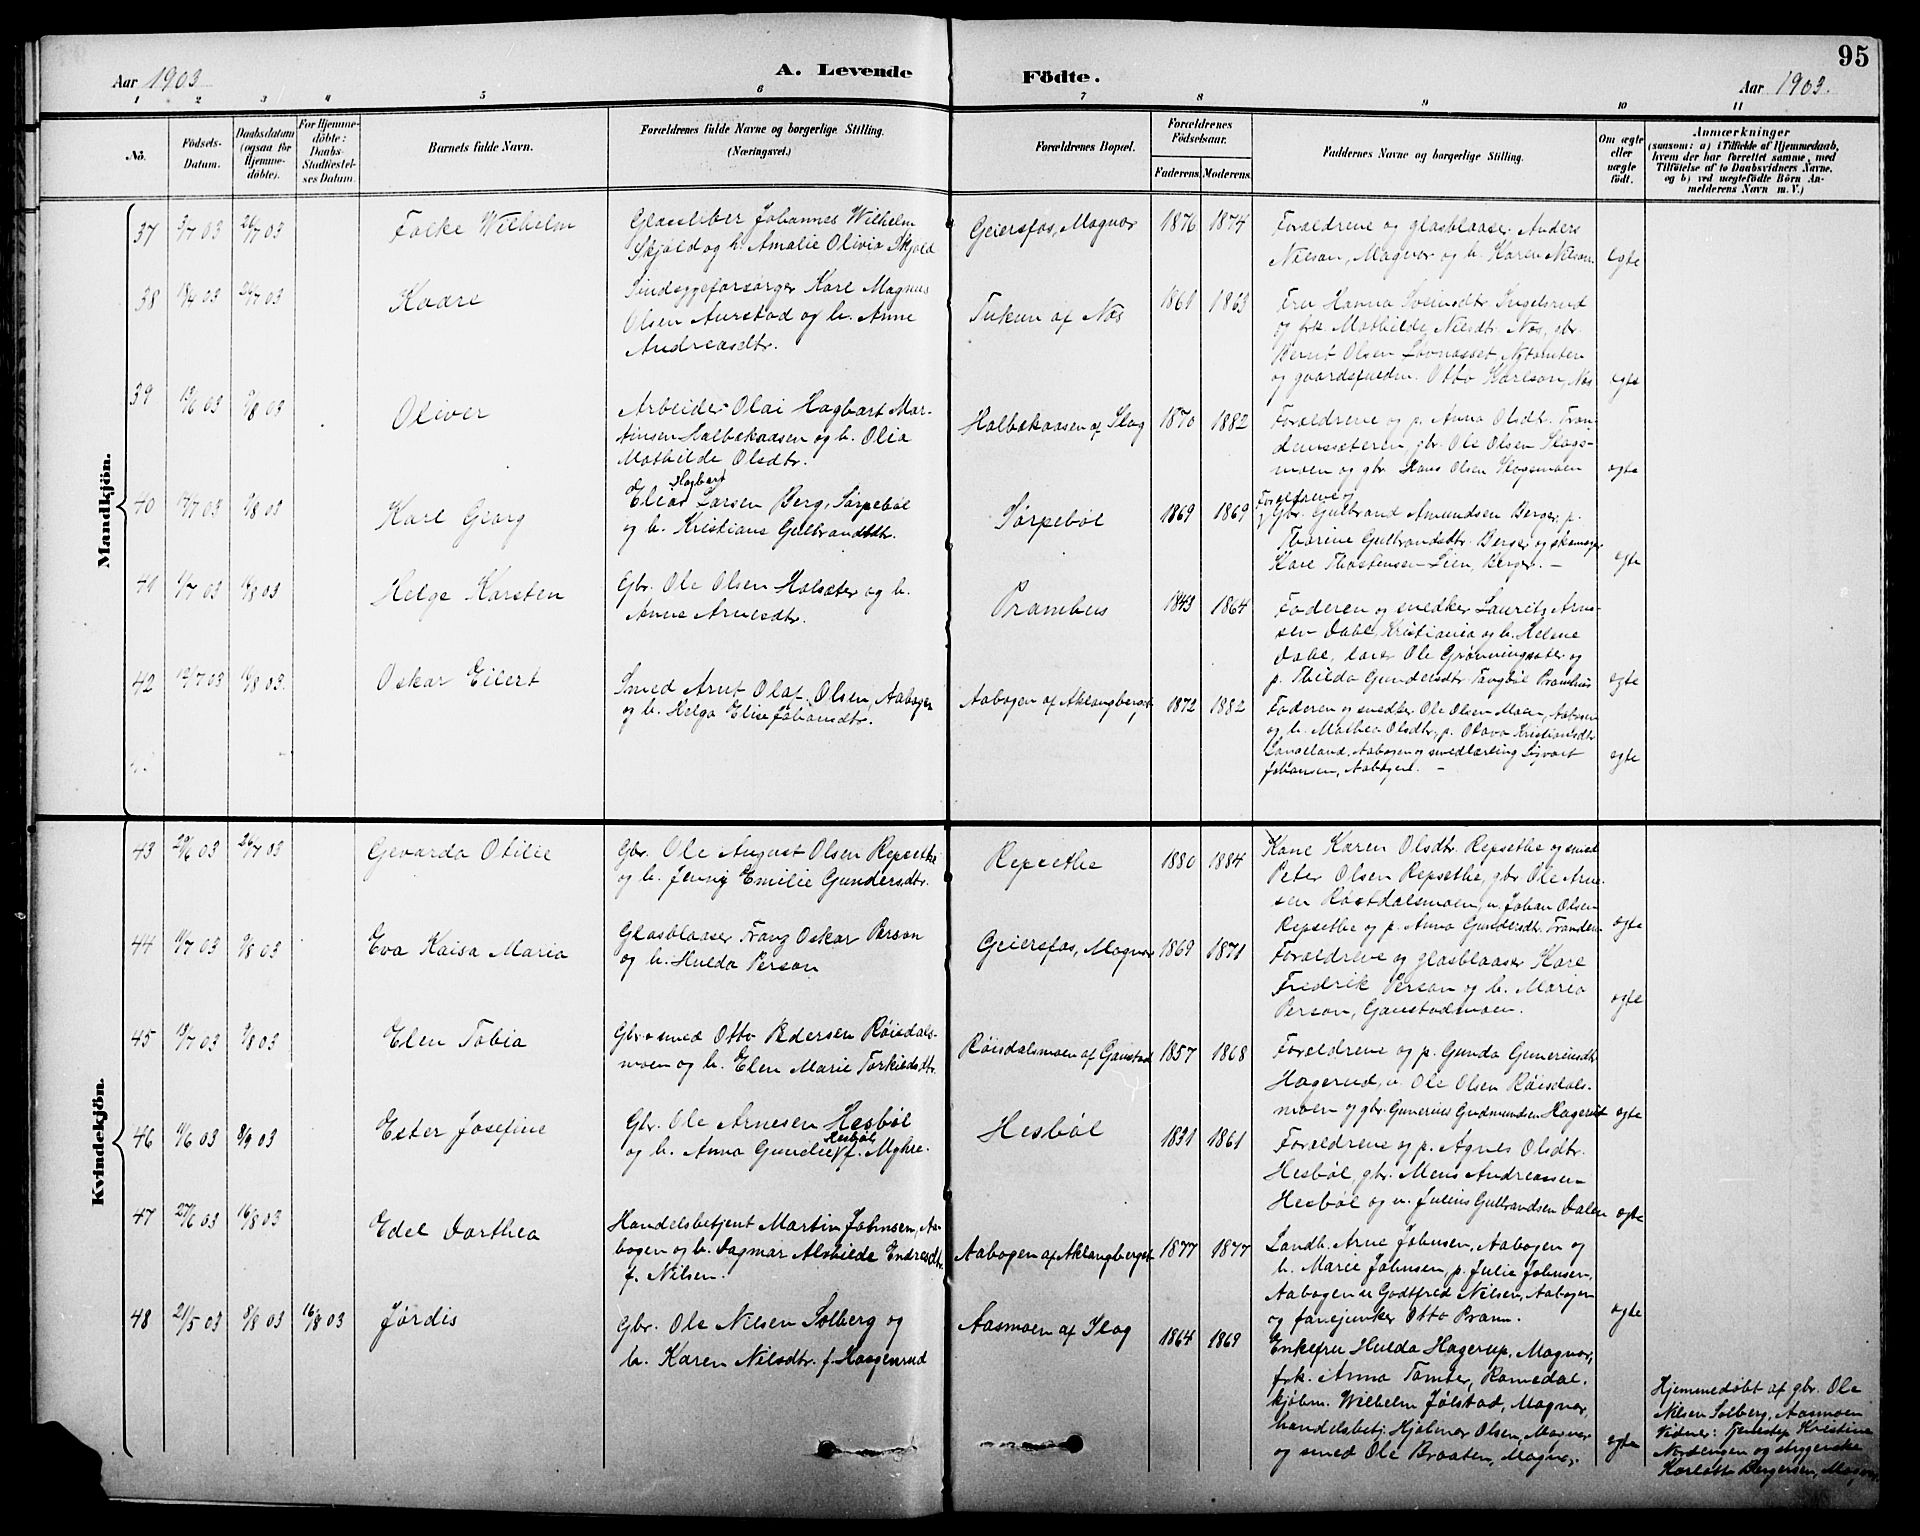 95
Aar 1903
A. Levende
Födte.
Aar 1903.
1 2 3 4 5 6 7 8 9 10 11
No.
Födsels-
Datum.
Daabsdatum
(ogsaa for
Hjemme-
döbte).
For Hjemme-
döbte:
Daabs-
Stadfæstel-
ses Datum.
Barnets fulde Navn.
Forældrenes fulde Navne og borgerlige Stilling.
(Næringsvei.)
Forældrenes Bopæl.
Forældrenes
Födselsaar.
Faderens.
Moderens.
Faddernes Navne og borgerlige Stilling.
Om ægte
eller
uægte
födt.
Anmærkninger
(saasom: a) i Tilfælde af Hjemmedaab,
hvem der har forrettet samme, med
Tilföielse af to Daabsvidners Navne,
og b) ved uægtefödte Börn An-
melderens Navn m. V.)
Mandkjön.
37
3/7 03
26/7 03
Folke Wilhelm
Glassliber Johannes Wilhelm
Skjöld og h. Amalie Olivia Skjöld
Geiersfos, Magnor
1876
1874
Forældrene og glasblaaser Anders
Nilsen, Magnor og h. Karen Nilsen
egte
38
18/4 03
26/7 03
Kaare
Sindssygeforsørger Karl Magnus
Olsen Aurstad og h. Anne
Andreasdtr.
af Nos
1861
1863
Fru Hanna Sveinsdtr. Ingelsrud
og frk. Mathilde Nilsdtr. Nos, gbr.
Bernt Olsen
og gaardsfuldm. Otto Karlson, Nos
egte
39
/6 03
9/8 03
Oliver
Arbeider Olai Hagbart Mar-
tinsen Halbækaasen og h. Olia
Mathilde Olsdtr.
Halbækaasen af Slog
1870
1882
Forældrene og p. Anna Olsdtr. Tran-
demssæteren gbr. Ole Olsen Slogs-
moen og gbr. Hans Olsen Slogsmoen
egte
40
/7 03
9/8 03
Karl Georg
Hagbart
Elias Larsen Berg, Sørpebøl
og h. Kristiane Gulbrandsdtr.
Sørpebøl
1869
1869
Forældrene og
Gbr. Gulbrand Amundsen Berger, p.
Thorine Gulbrandsdtr. Berger og skomager
Karl Thostensen Lien, Berger. –
egte
41
1/7 03
/8 03
Helge Karsten
Gbr. Ole Olsen Holsæter og h.
Anne Arnesdtr.
Pramhus
1843
1864
Faderen og snedker Lauritz Arne-
sen Dahl, Kristiania og h. Helene
Dahl, lærer Ole Grønningsæter og
p. Thilda Gundersdtr. Tangbøl Pramhus
egte
42
/7 03
16/8 03.
Oskar Eilert
Smed Arnt Olaf Olsen, Aabogen
og h. Helga Elise Johansdtr.
Aabogen af Aklangberget
1872
1882
Faderen og snedker Ole Olsen Moen, Aabogen
og h. Mathea Olsdtr, p. Olava Kristiansdtr.
Langeland, Aabogen og smedlærling Sigvart
Johansen, Aabogen. –
egte
Kvindekjön.
43
29/6 03
26/7 03
Gevarda Otilie
Gbr. Ole August Olsen Repsethe
og h. Jenny Emilie Gundersdtr.
Repsethe
1880
1884
Kone Karen Olsdtr. Repsethe og smed
Peter Olsen Repsethe, gbr. Ole Arne-
sen Røisdalsmoen, u. Johan Olsen
Repsethe og p. Anna Gundersdtr. Tranden
egte
44
/7 03
9/8 03
Eva Kaisa Maria
Glasblaaser Franz Oskar Person
og h. Hulda Person
Geiersfos, Magnor
1869
1871
Forældrene og glasblaaser Karl
Fredrik Person og h. Maria
Person, Gaustadmoen.
egte
45
/7 03
9/8 03
Elen Tobia
Gbr. o smed Otto Pedersen Røisdals-
moen og h. Elen Marie Torkildsdtr.
Røisdalsmoen af Gaustad
1857
1868
Forældrene og p. Gunda Guneriusdtr.
Hagerud, u. Ole Olsen Røisdals-
moen og gbr. Gunerius Gudmundsen Hagerud
egte
46
/6 03
8/9 03
Ester Josefine
Gbr. Ole Arnesen Hesbøl
og h. Anna Gundie Hesbøl f. Myhre.
Hesbøl
1831
1861
Forældrene og p. Agnes Olsdtr.
Hesbøl, gbr. Mens Andreassen
Hesbøl og u. Julius Gulbrandsen Dalen
egte
47
27/6 03
16/8 03
Edel Dorthea
Handelsbetjent Martin Johnsen, Aa-
bogen og h. Dagmar Alvhilde Endresdtr.
f. Nilsen.
Aabogen af Aklangberget
1877
1877
Landh. Arne Johnsen, Aabogen og
h. Marie Johnsen, p. Julie Johnsen,
Aabogen u. Godtfred Nilsen, Aabogen
og fanejunker Otto Bram.
egte
48
21/5 03
8/8 03
16/8 03
Jørdis
Gbr. Ole Nilsen Solberg og
h. Karen Nilsdtr. f. Haagenrud
Aasmoen af Slog
1864
1869
Enkefru Hulda Hagerup, Magnor,
frk. Anna Tomter, Romedal.
kjøbm. Wilhelm Jølstad, Magnor,
handelsbetj. Hjalmar Olsen, Magnor
og smed Ole Braaten, Magnor.
egte
Hjemmedøbt af gbr. Ole
Nilsen Solberg, Aasmoen
Vidner: Tjenestep. Kristine
Nordengen og strygerske
Karlotte Bergersen, Magnor